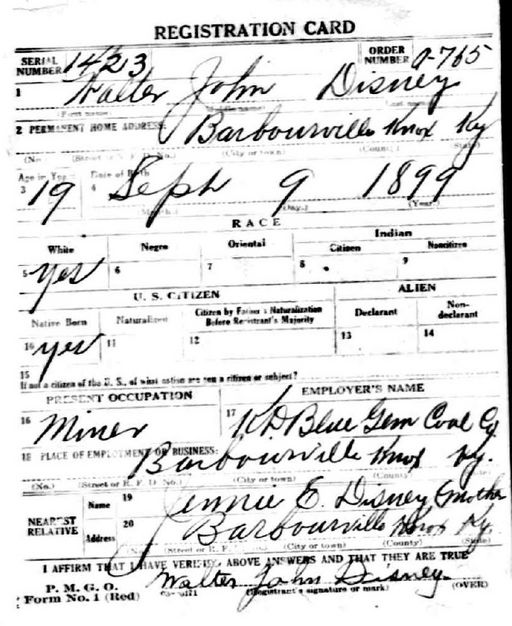 REGISTRATION CARD
SERIAL NUMBER 1423 ORDER NUMBER A-765
1 Walter John Disney
(First name) (Last name)
2 PERMANENT HOME ADDRESS: Barbourville Knox Ky
(No.) (Street or R. F. D. No.) (City or town) (County) (State)
Age in Years Date of Birth
3 19 4 Sept 9 1899
(Month.) (Day.) (Year.)
RACE
White Negro Oriental Indian
Citizen Noncitizen
5 Yes 6 7 8 9
U. S. CITIZEN ALIEN
Native Born Naturalized Citizen by Father's Naturalization Before Registrant's Majority Declarant Non-declarant
10 yes 11 12 13 14
15
If not a citizen of the U. S., of what nation are you a citizen or subject?
PRESENT OCCUPATION EMPLOYER'S NAME
16 Miner 17 KD Blue Gem Coal Co
18 PLACE OF EMPLOYMENT OR BUSINESS: Barbourville Knox Ky.
(No.) (Street or R. F. D. No.) (City or town) (County) (State)
NEAREST RELATIVE
Name 19 Jennie E. Disney Mother
Address 20 Barbourville Knox Ky.
(No.) (Street or R. F. D. No.) (City or town) (County) (State)
I AFFIRM THAT I HAVE VERIFIED ABOVE ANSWERS AND THAT THEY ARE TRUE
P. M. G. O.
Form No. 1 (Red) Walter John Disney
(Registrant's signature or mark) (OVER)